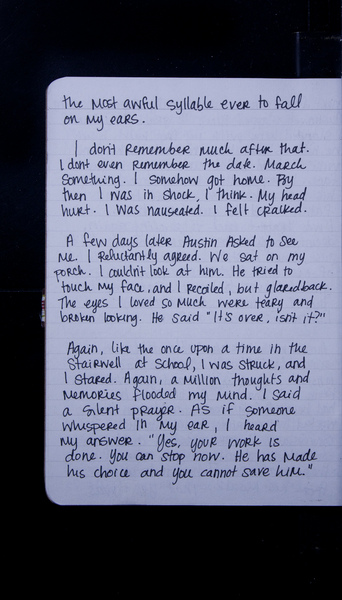 the most awful syllable ever to fall
on my ears.
I don't remember much after that.
I dont even remember the date. March
something. I somehow got home. By
then I was in shock, I think. My head
hurt. I was nauseated. I felt cracked.
A few days later Austin Asked to see
me. I reluctantly agreed. We sat on my
porch. I couldn't look at him. He tried to
touch my face, and I recoiled, but glanced back.
The eyes I loved so much were teary and
broken looking. He said "It's over, isn't it?"
Again, like the once upon a time in the
stairwell at school, I was struck, and
I stared. Again, a million thoughts and
memories flooded my mind. I said
a silent prayer. As if someone
whuspered in my ear, I heard
my answer. "Yes, your work is
done. You can stop now. He has made
his choice and you cannot save him."